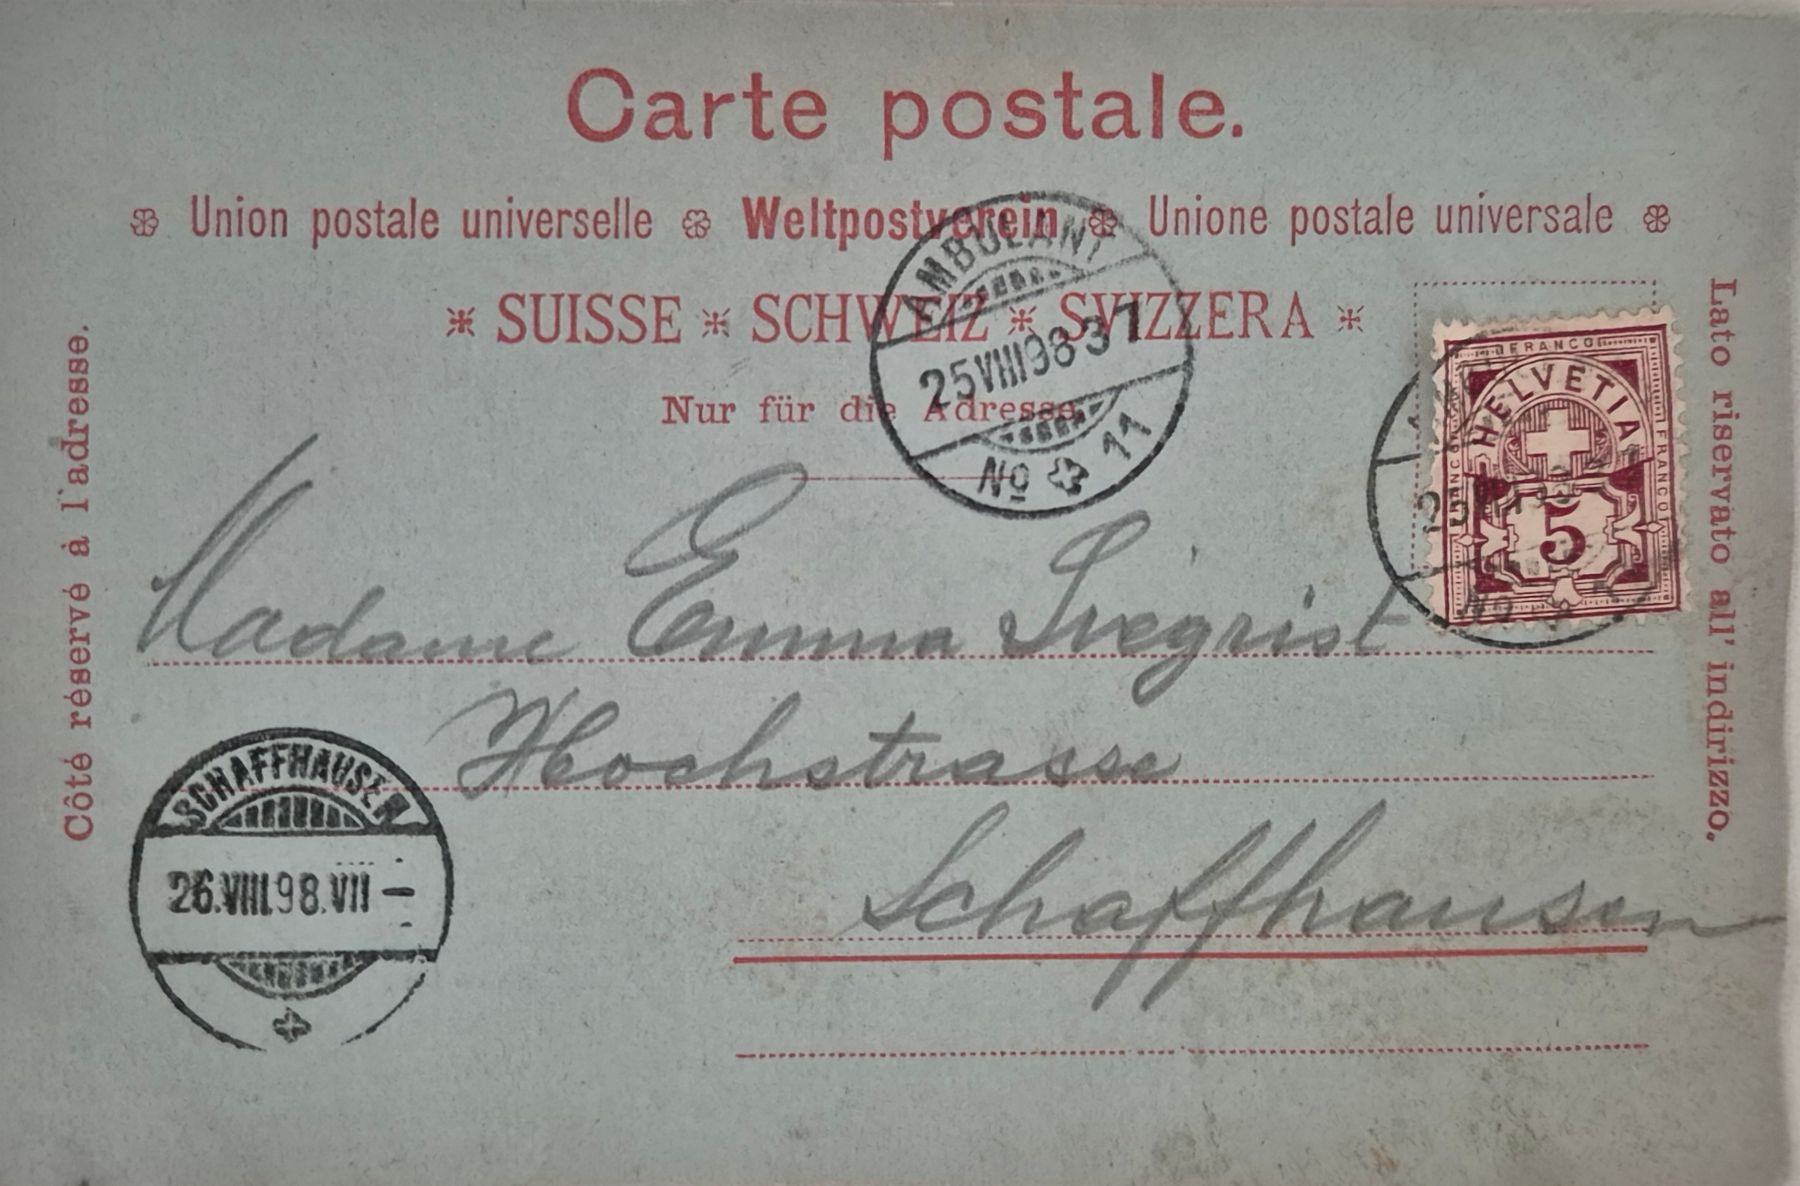 Carte postale.
Union postale universelle Weltpostverein Unione postale universale
SUISSE * SCHWEIZ * SVIZZERA
Nur für die Adresse.
Côté réservé à l'adresse.
Lato riservato all' indirizzo.
AMBULANT
25 VIII 98 31
No 11
FRANCO
HELVETIA
FRANCO
5
No
Madame Emma Siegrist
Hochstrasse
Schaffhausen
SCHAFFHAUSEN
26.VIII.98.VII –